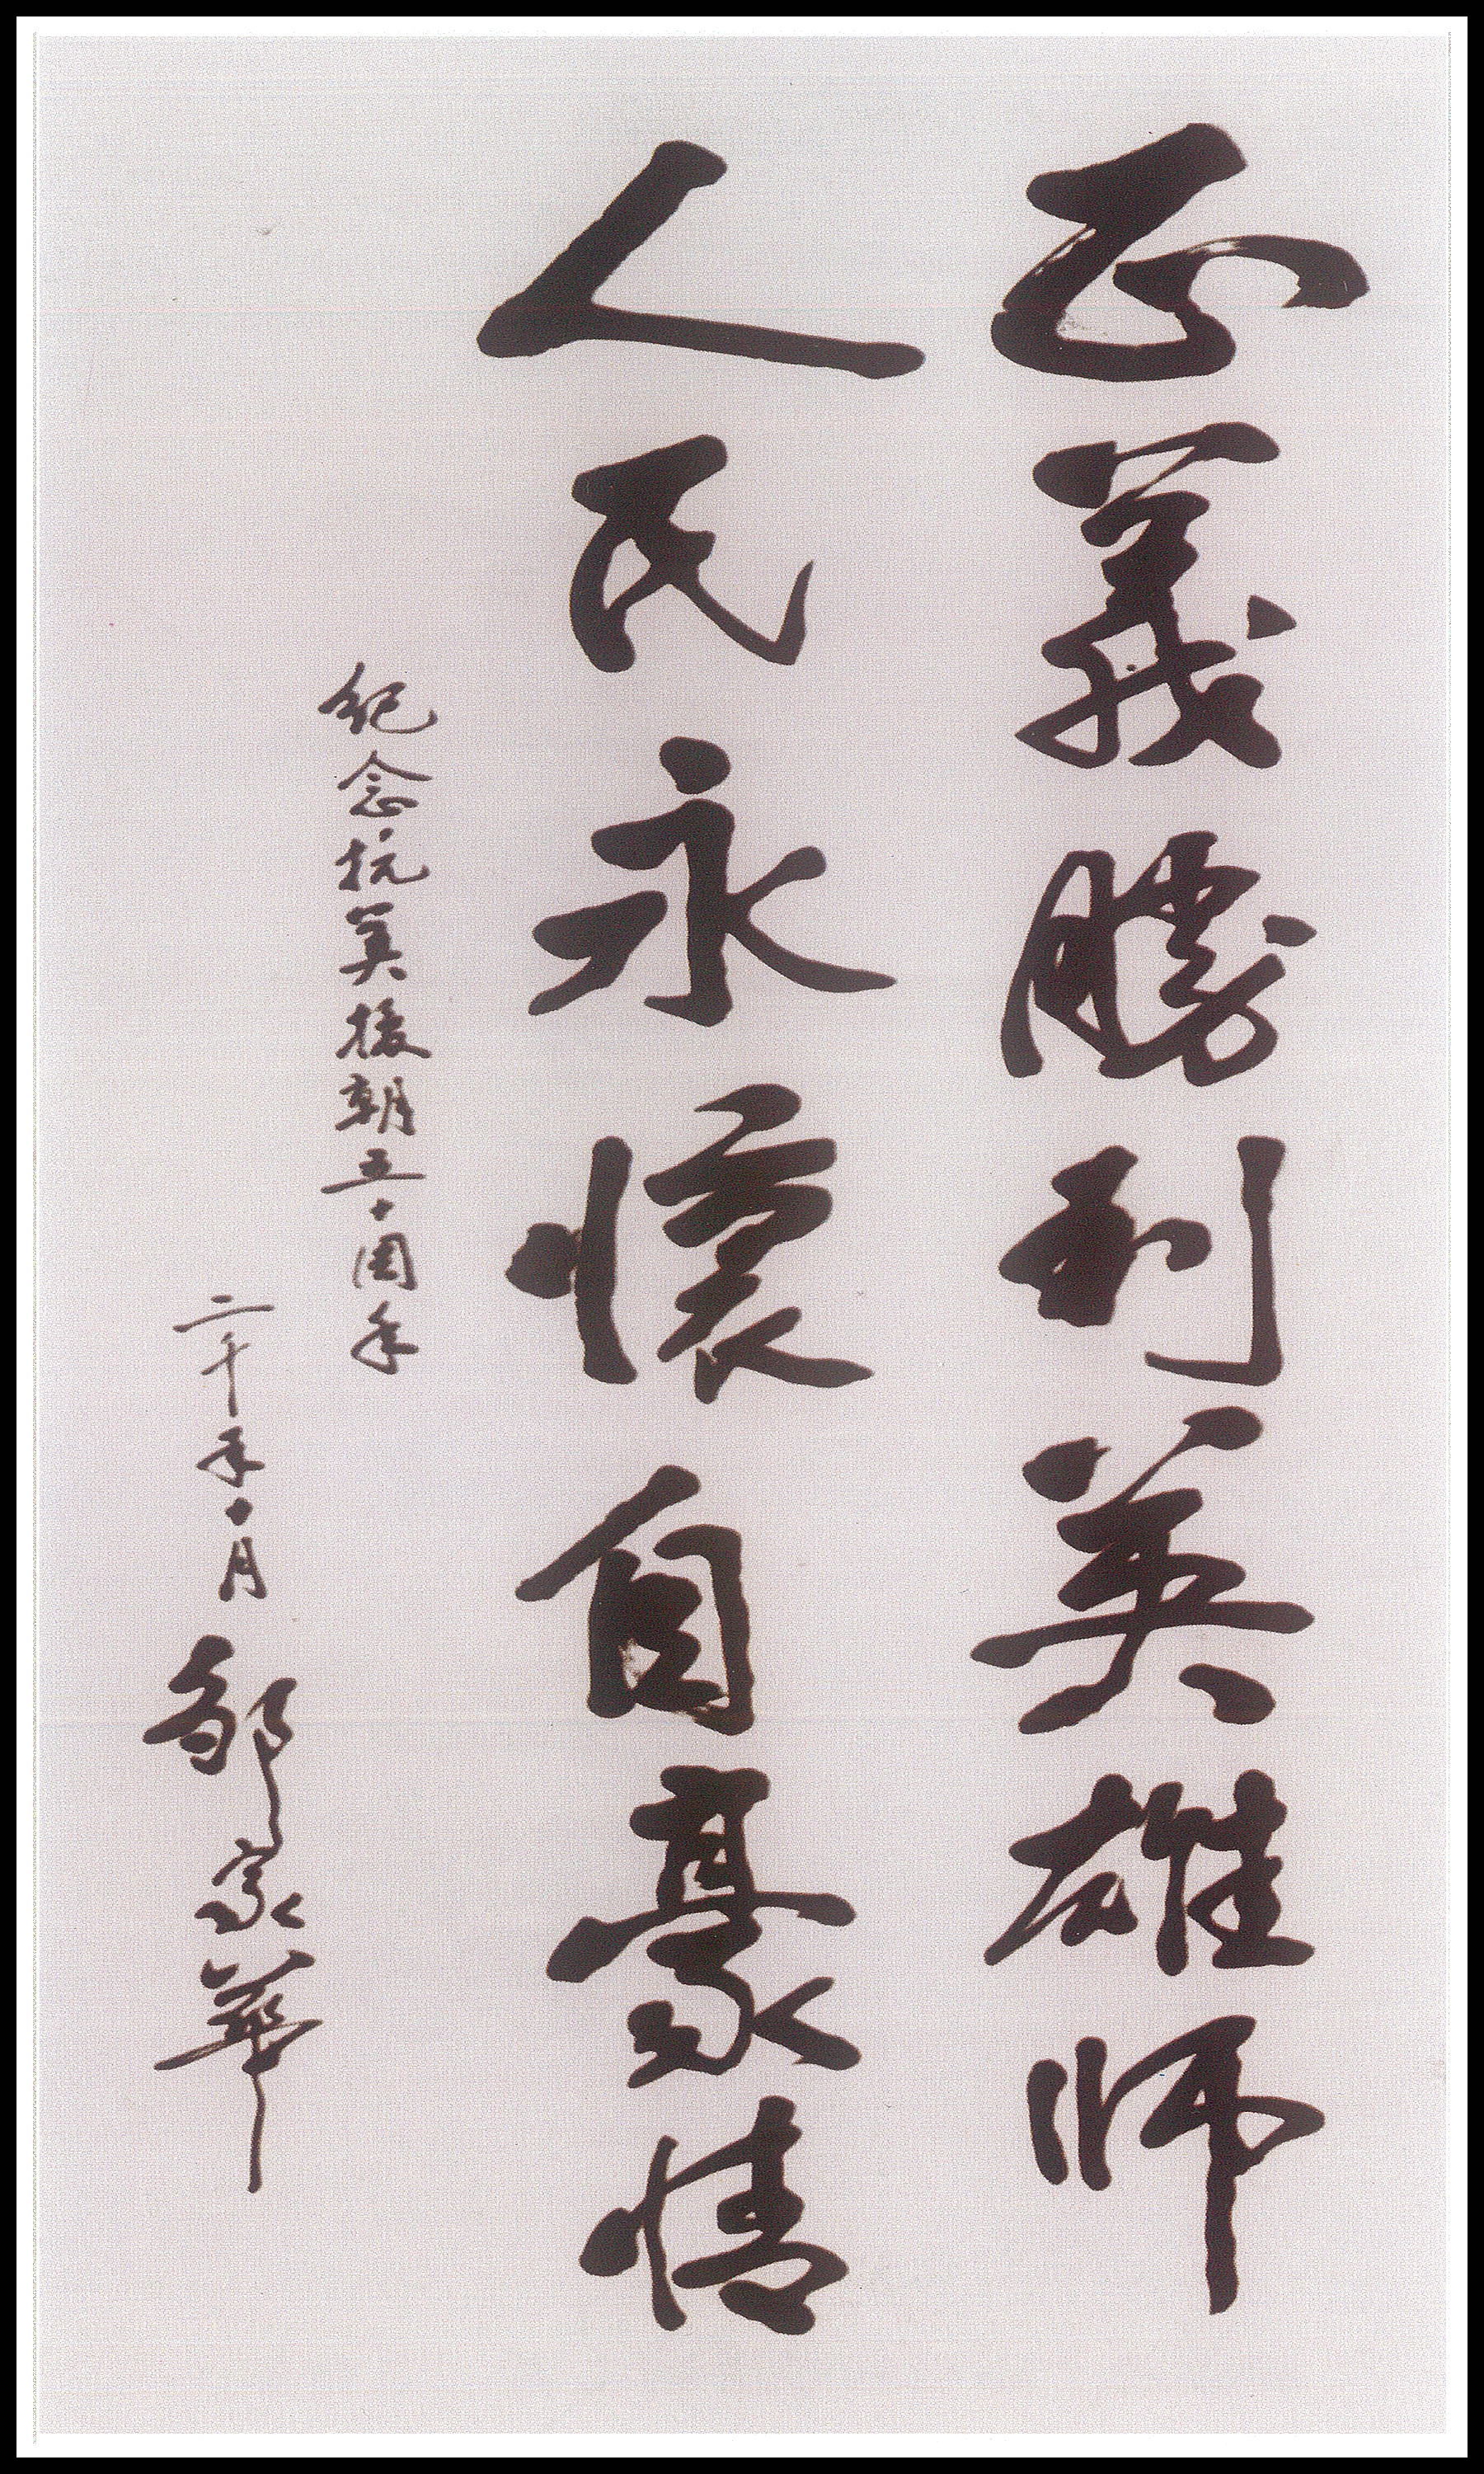 正義勝利英雄师
人民永懷自豪情
纪念抗美援朝五十周年
二千年十月
邹家華